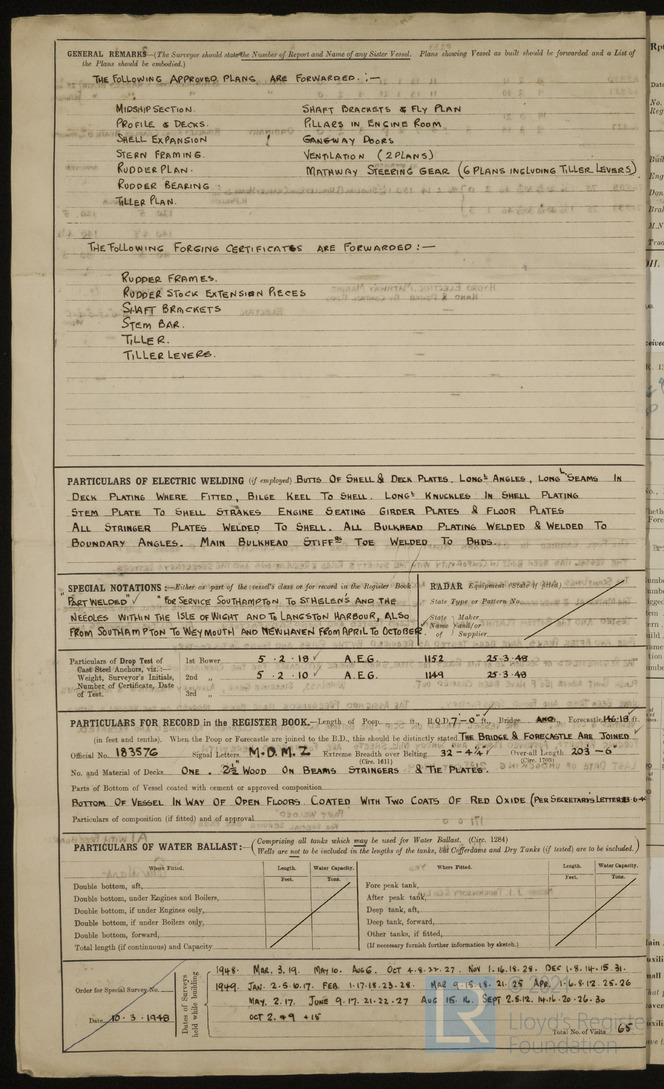 GENERAL REMARKS—(The Surveyor should state the Number of Report and Name of any Sister Vessel. Plans showing Vessel as built should be forwarded and a List of
the Plans should be embodied.)
THE FOLLOWING APPROVED PLANS ARE FORWARDED. :—
MIDSHIP SECTION. SHAFT BRACKETS & FLY PLAN
PROFILE & DECKS. PILLARS IN ENGINE ROOM
SHELL EXPANSION GANGWAY DOORS
STERN FRAMING. VENTILATION (2 PLANS)
RUDDER PLAN. MATHWAY STEERING GEAR (6 PLANS INCLUDING TILLER LEVERS)
RUDDER BEARING
TILLER PLAN.
THE FOLLOWING FORGING CERTIFICATES ARE FORWARDED :—
RUDDER FRAMES.
RUDDER STOCK EXTENSION PIECES
SHAFT BRACKETS
STEM BAR.
TILLER.
TILLER LEVERS.
PARTICULARS OF ELECTRIC WELDING (if employed) BUTTS OF SHELL & DECK PLATES. LONGL ANGLES, LONGL SEAMS IN
DECK PLATING WHERE FITTED, BILGE KEEL TO SHELL. LONGL KNUCKLES IN SHELL PLATING
STEM PLATE TO SHELL STRAKES ENGINE SEATING GIRDER PLATES & FLOOR PLATES
ALL STRINGER PLATES WELDED TO SHELL. ALL BULKHEAD PLATING WELDED & WELDED TO
BOUNDARY ANGLES. MAIN BULKHEAD STIFFRS TOE WELDED TO BHDS.
SPECIAL NOTATIONS :—Either as part of the vessel's class or for record in the Register Book
"PART WELDED" "FOR SERVICE SOUTHAMPTON TO ST HELEN'S AND THE
NEEDLES WITHIN THE ISLE OF WIGHT AND TO LANGSTON HARBOUR, ALSO
FROM SOUTHAMPTON TO WEYMOUTH AND NEWHAVEN FROM APRIL TO OCTOBER.
RADAR Equipment (State if fitted)
State Type or Pattern No.
State Maker
Name and/or
of Supplier
Particulars of Drop Test of
Cast Steel Anchors, viz.:—
Weight, Surveyor's Initials,
Number of Certificate, Date
of Test.
1st Bower 5 . 2 . 19 A.E.G. 1152 25.3.48
2nd „ 5 . 2 . 10 A.E.G. 1149 25.3.48
3rd „
PARTICULARS FOR RECORD in the REGISTER BOOK.—Length of Poop ft., R.Q.D. 7-0 ft., Bridge AND, Forecastle 146.18 ft.
(in feet and tenths). When the Poop or Forecastle are joined to the B.D., this should be distinctly stated THE BRIDGE & FORECASTLE ARE JOINED
Official No. 183576 Signal Letters M.D.M.Z Extreme Breadth over Belting 32'-4¾" Over-all Length 203'-6"
(Circ. 1611) (Circ. 1703)
No. and Material of Decks ONE . 2½" WOOD ON BEAMS STRINGERS & TIE PLATES.
Parts of Bottom of Vessel coated with cement or approved composition
BOTTOM OF VESSEL IN WAY OF OPEN FLOORS COATED WITH TWO COATS OF RED OXIDE (PER SECRETARY'S LETTER
Particulars of composition (if fitted) and of approval
PARTICULARS OF WATER BALLAST:—(Comprising all tanks which may be used for Water Ballast. (Circ. 1284)
Wells are not to be included in the lengths of the tanks, but Cofferdams and Dry Tanks (if tested) are to be included.)
Where Fitted. Length. Water Capacity. Where Fitted. Length. Water Capacity.
Feet. Tons. Feet. Tons.
Double bottom, aft, Fore peak tank,
Double bottom, under Engines and Boilers, After peak tank,
Double bottom, if under Engines only, Deep tank, aft,
Double bottom, if under Boilers only, Deep tank, forward,
Double bottom, forward, Other tanks, if fitted,
Total length (if continuous) and Capacity (If necessary furnish further information by sketch.)
Order for Special Survey No.
Date 10.3.1948
Dates of Surveys held while building
1948. MAR. 3.19. MAY 10. AUG 6. OCT 4.8.22.27. NOV 1.16.18.28. DEC 1.8.14.15.31.
1949. JAN. 2.5.10.17. FEB. 1.17.18.23.28. MAR 9.15.18.21.25 APR. 1.6.8.12.25.26
MAY. 2.17. JUNE 9.17.21.22.27 AUG 15.16. SEPT 2.5.12.14.16.20.26.30
OCT 2.49 +15
Total No. of Visits 65
LR
Lloyd's Register
Foundation